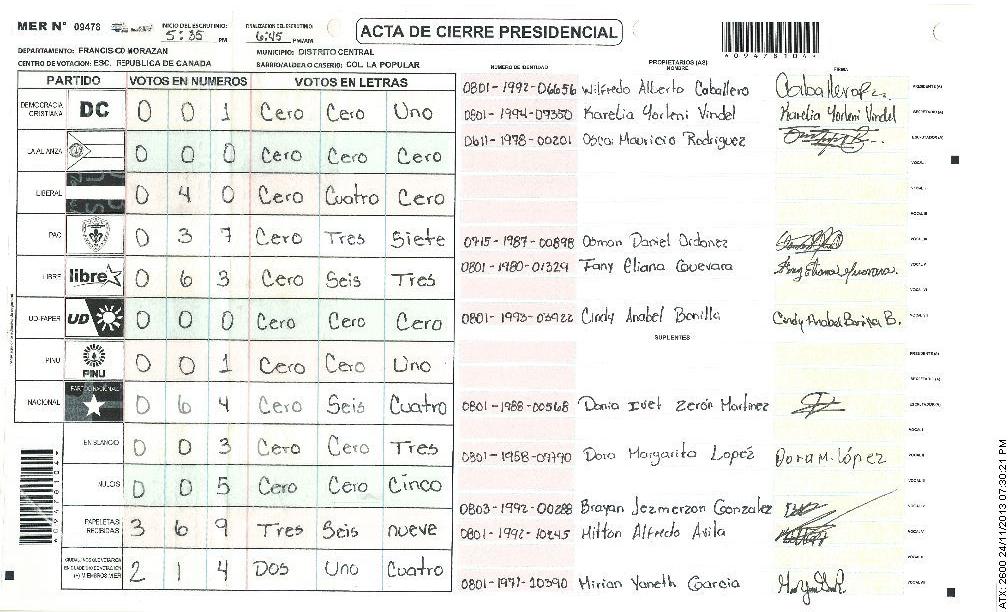 MER Nº 09478
INICIO DEL ESCRUTINIO: 5:35 PM
FINALIZACION DEL ESCRUTINIO: 6:45 PM/AM
ACTA DE CIERRE PRESIDENCIAL
DEPARTAMENTO: FRANCISCO MORAZAN
MUNICIPIO: DISTRITO CENTRAL
CENTRO DE VOTACION: ESC. REPUBLICA DE CANADA
BARRIO/ALDEA O CASERIO: COL. LA POPULAR
PARTIDO VOTOS EN NUMEROS VOTOS EN LETRAS
DEMOCRACIA CRISTIANA DC 0 0 1 Cero Cero Uno
LA ALIANZA 0 0 0 Cero Cero Cero
LIBERAL 0 4 0 Cero Cuatro Cero
PAC 0 3 7 Cero Tres Siete
LIBRE libre 0 6 3 Cero Seis Tres
UD-FAPER UD 0 0 0 Cero Cero Cero
PINU PINU 0 0 1 Cero Cero Uno
NACIONAL PARTIDO NACIONAL 0 6 4 Cero Seis Cuatro
EN BLANCO 0 0 3 Cero Cero Tres
NULOS 0 0 5 Cero Cero Cinco
PAPELETAS RECIBIDAS 3 6 9 Tres Seis nueve
2 1 4 Dos Uno Cuatro
NUMERO DE IDENTIDAD PROPIETARIOS (AS) NOMBRE FIRMA
0801-1992-06656 Wilfredo Alberto Caballero PRESIDENTE(A)
0801-1994-09350 Karelia Yorleni Vindel Karelia Yorleni Vindel SECRETARIO(A)
0611-1978-00201 Oscar Mauricio Rodriguez ESCRUTADOR(A)
VOCAL I
VOCAL II
0715-1987-00898 Osman Daniel Ordonez VOCAL III
0801-1980-01329 Fany Eliana Guevara
0801-1993-03922 Cindy Anabel Bonilla Cindy Anabel Bonilla B.
SUPLENTES
PRESIDENTE(A)
SECRETARIO(A)
0801-1988-00568 Dania Ivet Zerón Martinez ESCRUTADOR(A)
VOCAL I
0801-1958-07790 Dora Margarita Lopez Dora M. López VOCAL II
0803-1992-00288 Brayan Jezmerzon Gonzalez
0801-1992-10245 Hilton Alfredo Avila
0801-1971-10390 Mirian Yaneth Garcia
ATX: 2600 24/11/2013 07:30:21 PM